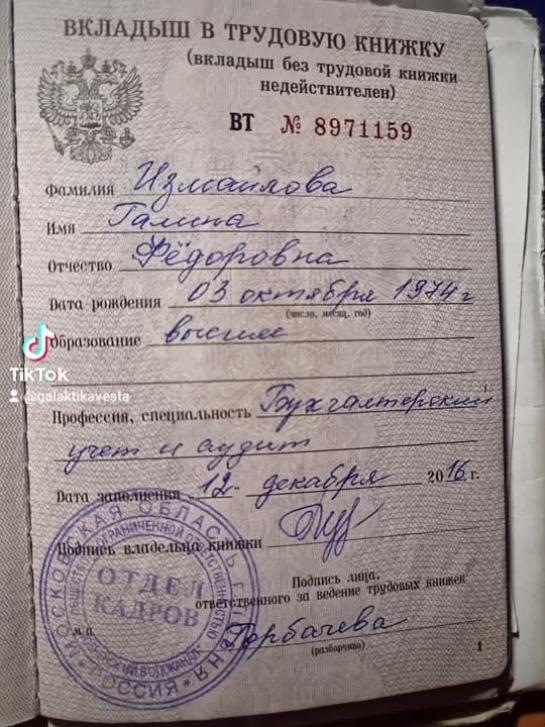 ВКЛАДЫШ В ТРУДОВУЮ КНИЖКУ
(вкладыш без трудовой книжки
недействителен)
ВТ № 8971159
Фамилия Измаилова
Имя Галина
Отчество Фёдоровна
Дата рождения 03 октября 1974 г
(число, месяц, год)
TikTok
@galaktikavesta
Образование высшее
Профессия, специальность Бухгалтерский
учет и аудит
Дата заполнения 12 декабря 2016 г.
Подпись владельца книжки
Подпись лица,
ответственного за ведение трудовых книжек
Горбачева
(разборчиво)
М.П.
1
МОСКОВСКАЯ ОБЛАСТЬ
РОССИЯ
ОГРАНИЧЕННОЙ ОТВЕТСТВЕННОСТЬЮ
ОТДЕЛ
КАДРОВ